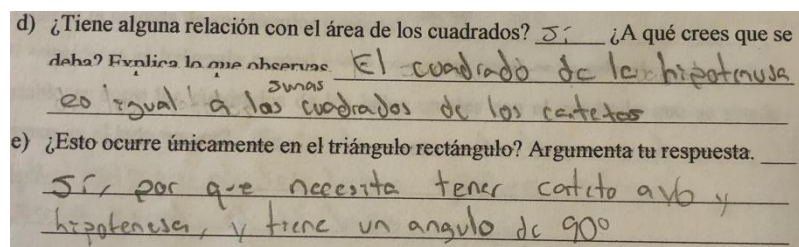 d) ¿Tiene alguna relación con el área de los cuadrados? Sí ¿A qué crees que se
deba? Explica lo que observas. El cuadrado de la hipotenusa
sumas
es igual a las cuadrados de los catetos
e) ¿Esto ocurre únicamente en el triángulo rectángulo? Argumenta tu respuesta.
Sí, por que necesita tener cateto a y b y
hipotenusa, y tiene un angulo de 90°